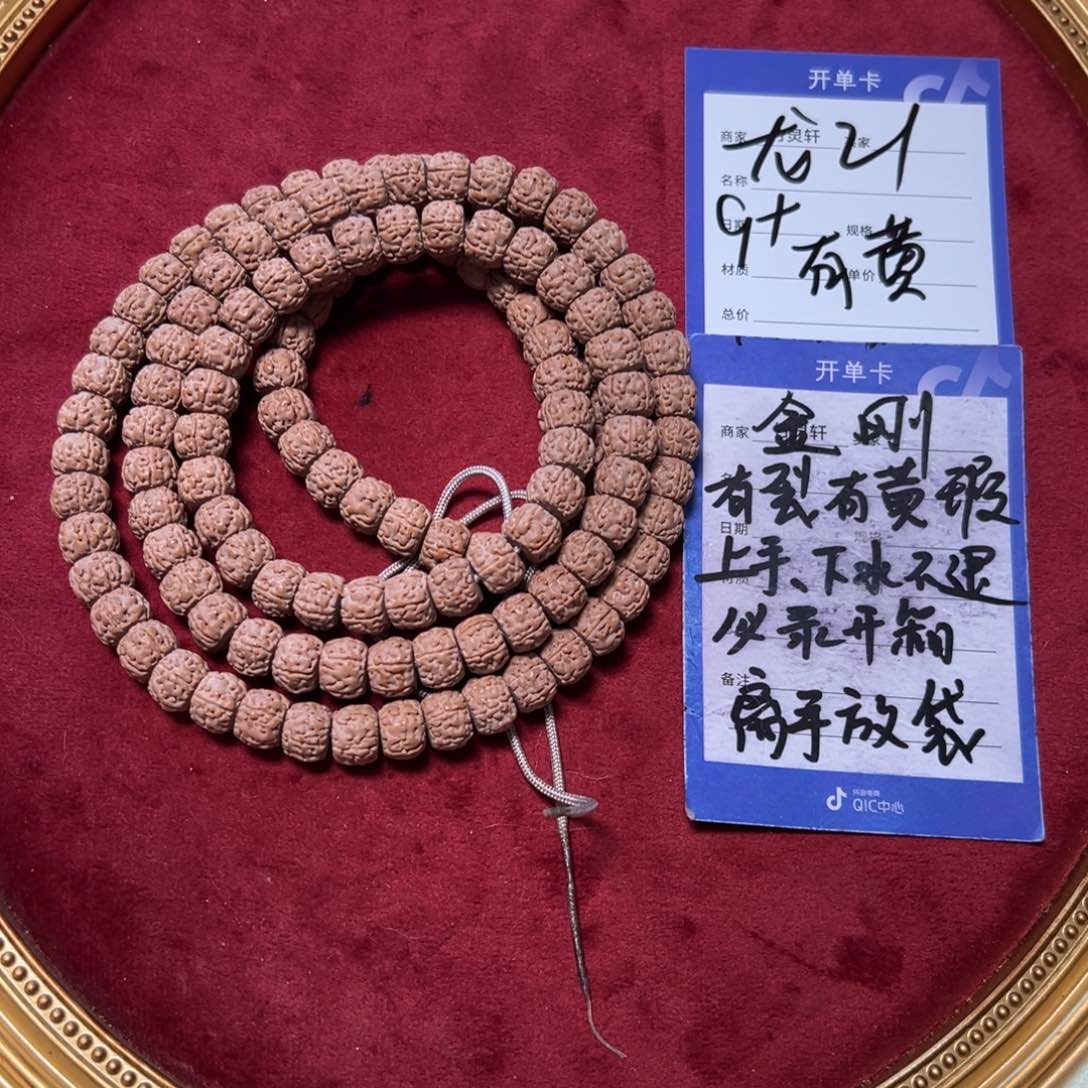 开单卡
商家 灵轩
龙21
名称
9+
日期 规格
有黄
材质 单价
总价
开单卡
商家 轩
金刚
有裂有黄瑕
日期
上手、下水不退
必录开箱
备注
离手放袋
抖音电商
QIC中心